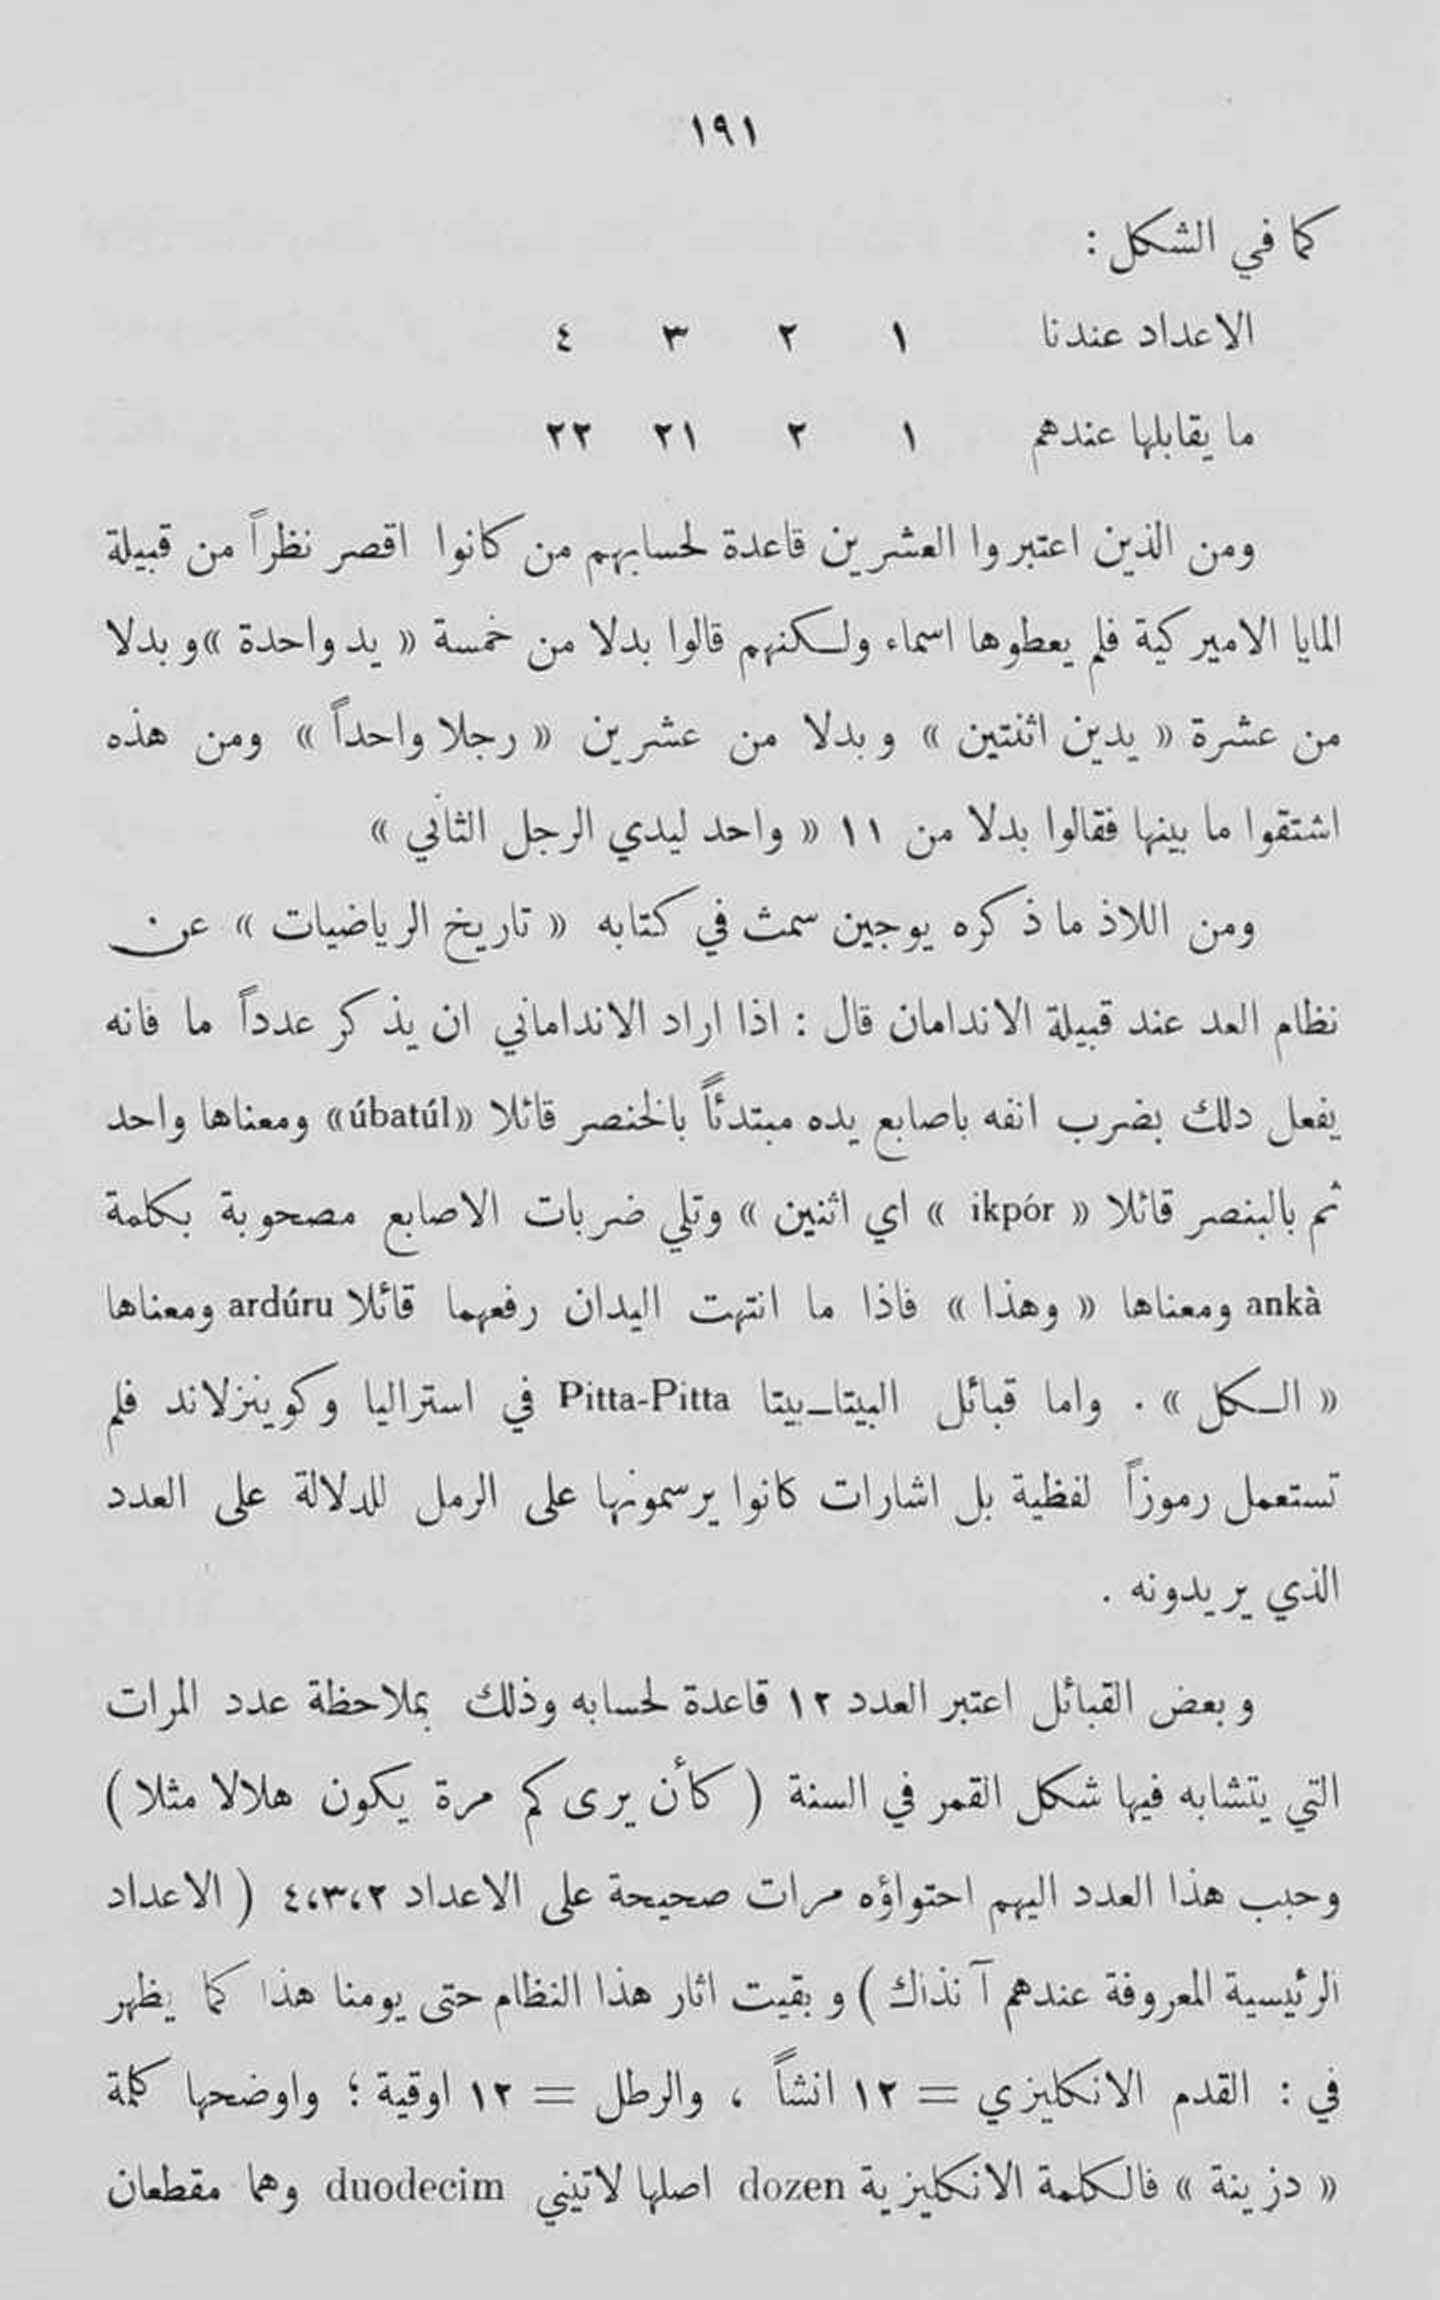 ١٩١
كما في الشكل :
الاعداد عندنا ١ ٢ ٣ ٤
ما يقابلها عندهم ١ ٢ ٢١ ٢٢
ومن الذين اعتبروا العشرين قاعدة لحسابهم من كانوا اقصر نظراً من قبيلة
المايا الاميركية فلم يعطوها اسماء ولكنهم قالوا بدلا من خمسة « يد واحدة » وبدلا
من عشرة « يدين اثنتين » وبدلا من عشرين « رجلا واحداً » ومن هذه
اشتقوا ما بينها فقالوا بدلا من ١١ « واحد ليدي الرجل الثاني »
ومن اللاذ ما ذكره يوجين سمث في كتابه « تاريخ الرياضيات » عن
نظام العد عند قبيلة الاندامان قال : اذا اراد الانداماني ان يذكر عدداً ما فانه
يفعل دلك بضرب انفه باصابع يده مبتدئاً بالخنصر قائلا «úbatúl» ومعناها واحد
ثم بالبنصر قائلا « ikpór » اي اثنين » وتلي ضربات الاصابع مصحوبة بكلمة
ankà ومعناها « وهذا » فاذا ما انتهت اليدان رفعهما قائلا ardúru ومعناها
« الكل » . واما قبائل البيتا-بيتا Pitta-Pitta في استراليا وكوينزلاند فلم
تستعمل رموزاً لفظية بل اشارات كانوا يرسمونها على الرمل للدلالة على العدد
الذي يريدونه .
وبعض القبائل اعتبر العدد ١٢ قاعدة لحسابه وذلك بملاحظة عدد المرات
التي يتشابه فيها شكل القمر في السنة ( كأن يرى كم مرة يكون هلالا مثلا )
وحبب هذا العدد اليهم احتواؤه مرات صحيحة على الاعداد ٢،٣،٤ ( الاعداد
الرئيسية المعروفة عندهم آنذاك ) وبقيت اثار هذا النظام حتى يومنا هذا كما يظهر
في : القدم الانكليزي = ١٢ انشاً ، والرطل = ١٢ اوقية ؛ واوضحها كلمة
« دزينة » فالكلمة الانكليزية dozen اصلها لاتيني duodecim وهما مقطعان